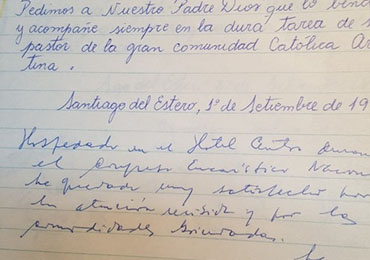 Pedimos a Nuestro Padre Dios que lo bend
y acompañe siempre en la dura tarea de s
pastor de la gran comunidad Católica Ar
tina.
Santiago del Estero, 1º de Setiembre de 19
Hospedado en el Hotel Centro duran
el Congreso Eucarístico Nacion
he quedado muy satisfecho por
la atención recibida y por las
comodidades brindadas.